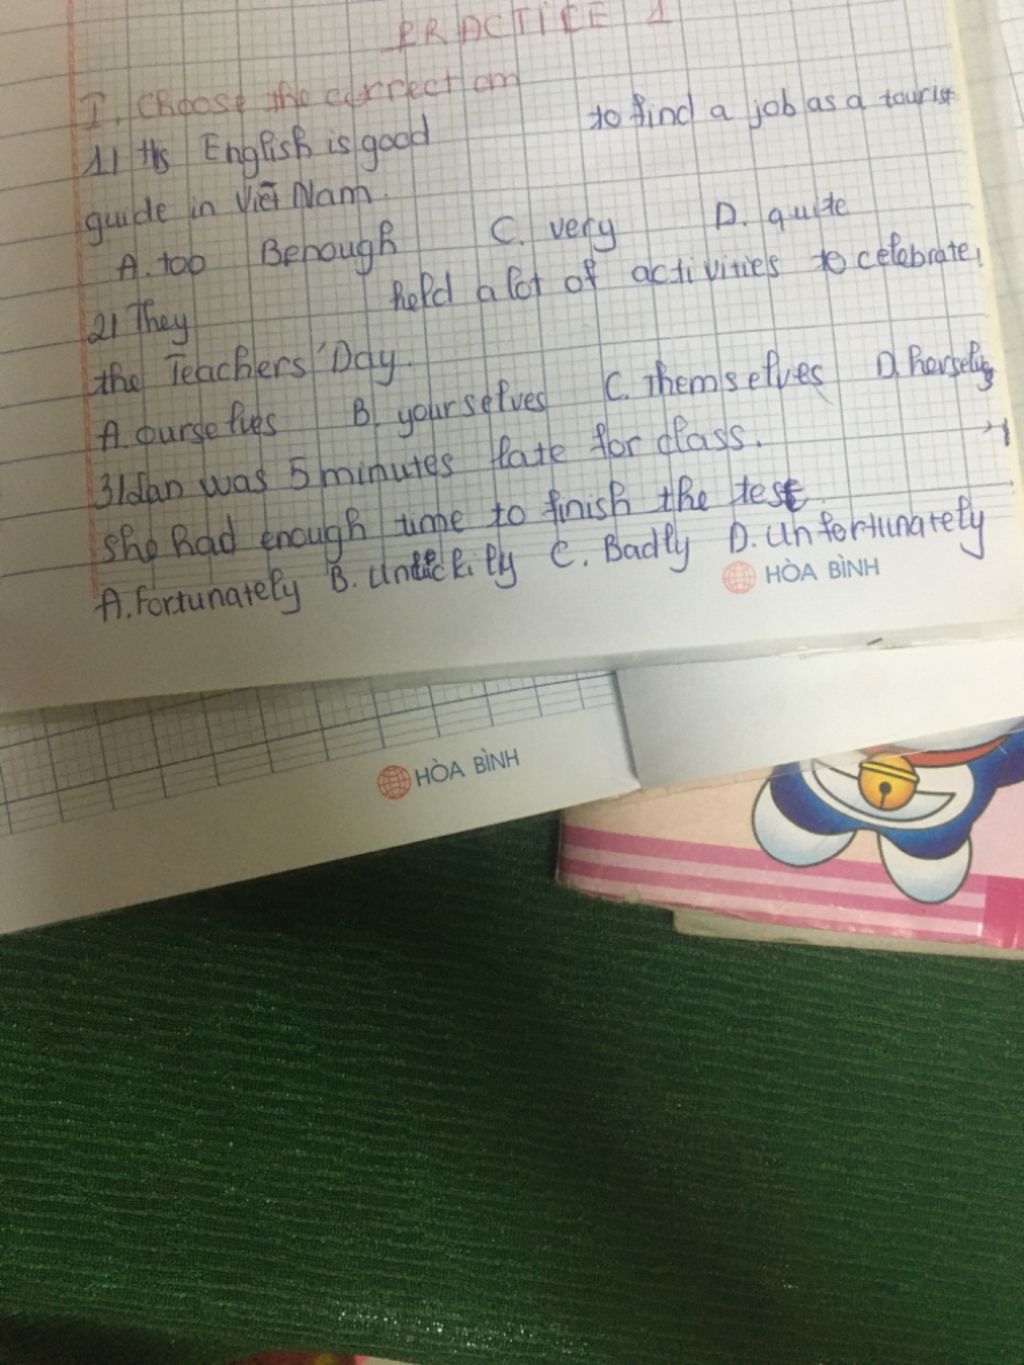 PRACTICE 1
I. Choose the correct om
1) His English is good to find a job as a tourist
guide in Việt Nam.
A. too B enough C. very D. quite
2) They held a lot of activities to celebrate
the Teachers' Day.
A. ourselves B. yourselves C. themselves D. herself
3) Lan was 5 minutes late for class.
she had enough time to finish the test
A. Fortunately B. Unluckily C. Badly D. Unfortunately
HÒA BÌNH
HÒA BÌNH